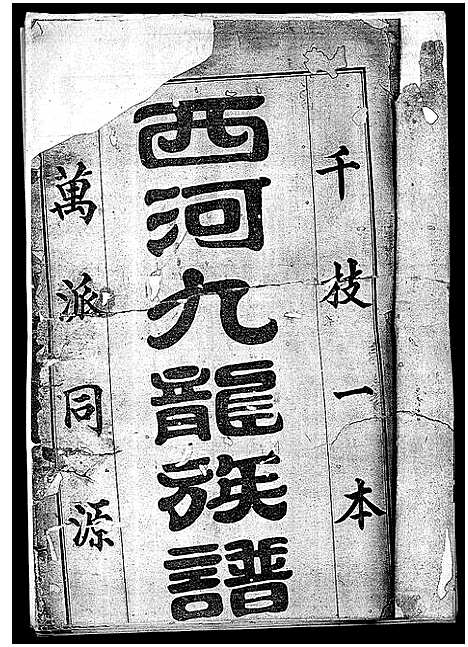 千技一本
西河九龍族譜
萬派同源